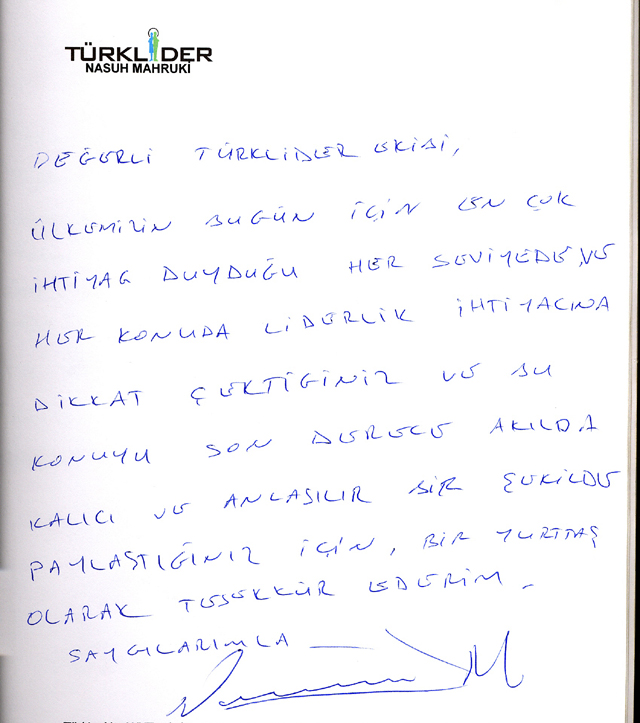 TÜRKLİDER
NASUH MAHRUKİ
DEĞERLİ TÜRKLİDER EKİBİ,
ÜLKEMİZİN BUGÜN İÇİN EN ÇOK
İHTİYAÇ DUYDUĞU HER SEVİYEDE VE
HER KONUDA LİDERLİK İHTİYACINA
DİKKAT ÇEKTİĞİNİZ VE BU
KONUYU SON DERECE AKILDA
KALICI VE ANLAŞILIR BİR ŞEKİLDE
PAYLAŞTIĞINIZ İÇİN, BİR YURTTAŞ
OLARAK TEŞEKKÜR EDERİM.
SAYGILARIMLA